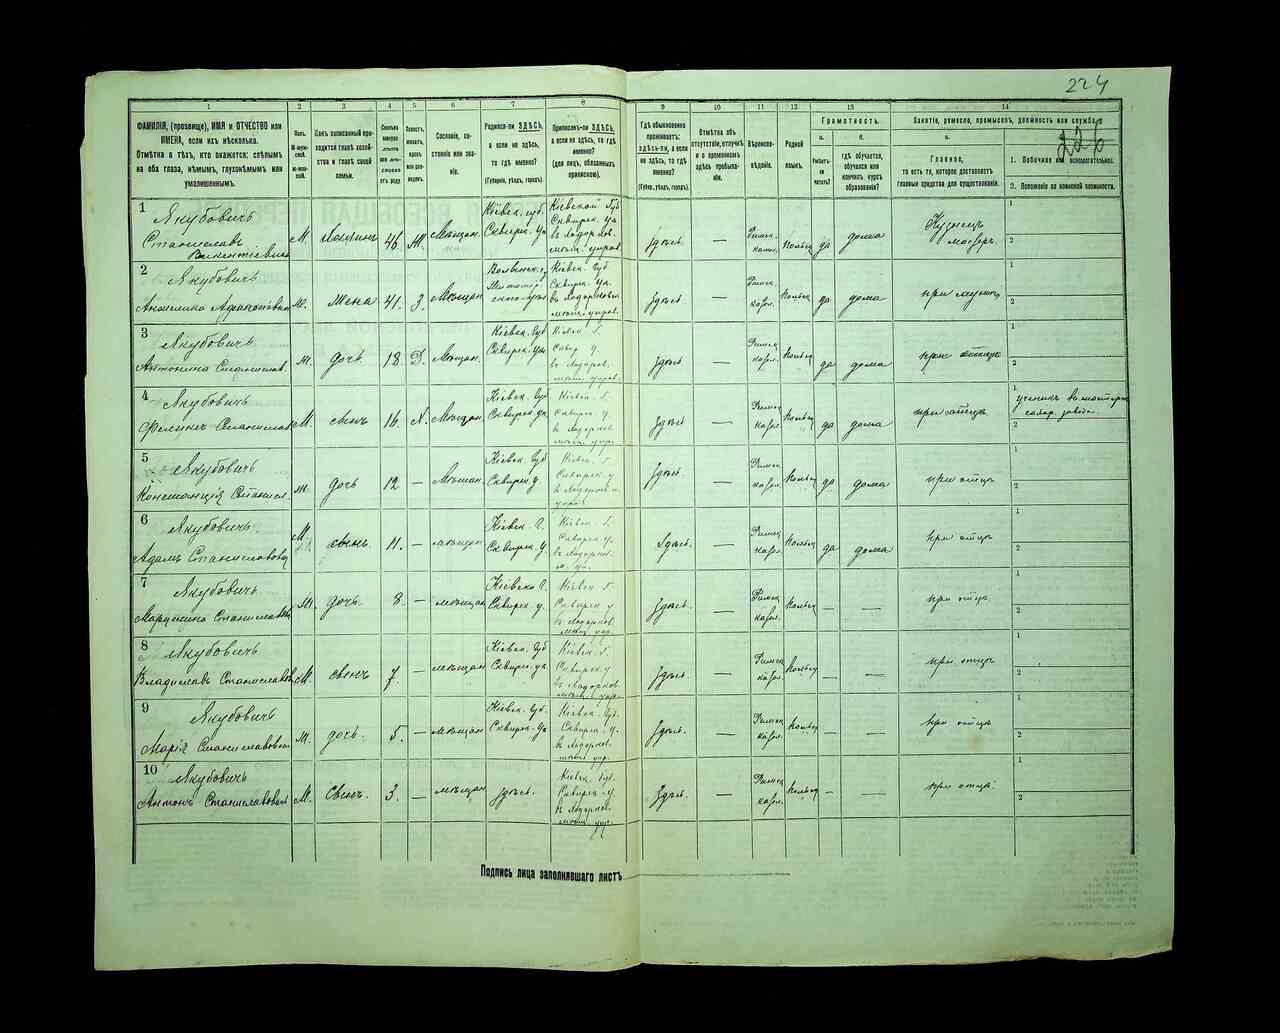 224
226
1
2
3
4
5
6
7
8
9
10
11
12
13
14
ФАМИЛІЯ, (прозвище), ИМЯ и ОТЧЕСТВО или
ИМЕНА, если ихъ нѣсколько.
Отмѣтка о тѣхъ, кто окажется: слѣпымъ
на оба глаза, нѣмымъ, глухонѣмымъ или
умалишеннымъ.
Полъ.
М-мужской.
Ж-женскій.
Какъ записанный приходится главѣ хозяйства и главѣ своей семьи.
Сословіе, состояніе или званіе.
Родился-ли ЗДѢСЬ,
а если не здѣсь,
то гдѣ именно?
(Губернія, уѣздъ, городъ).
Приписанъ-ли ЗДѢСЬ,
а если не здѣсь, то гдѣ
именно?
(для лицъ, обязанныхъ
припискою).
Гдѣ обыкновенно
проживаетъ:
здѣсь-ли, а если
не здѣсь, то гдѣ
именно?
(Губер., уѣздъ, городъ).
Отмѣтка объ
отсутствіи, отлучкѣ
и о временномъ
здѣсь пребываніи.
Вѣроисповѣданіе.
Родной
языкъ.
Грамотность.
а.
Умѣетъ-ли читать?
б.
гдѣ обучается,
обучался или
кончилъ курсъ
образованія?
Занятіе, ремесло, промыселъ, должность или служба.
а.
Главное,
то есть то, которое доставляетъ
главныя средства для существованія.
1. Побочное или вспомогательное.
2. Положеніе по воинской повинности.
1
Якубовичъ
Станиславъ
Викентіевичъ
М. хозяинъ 46 Ж. Мѣщан.
Кіевск. губ.
Сквирск. уѣ.
Кіевской Губ
Сквирск. Уѣ.
въ Ходорков.
мѣщ. управ.
здѣсь — Римск. катол. Польск да дома
Кузнецъ
мастеръ
1
2
2
Якубовичъ
Ж. Жена 41. З. Мѣщан
Волынск. г.
Кіевск. Губ
Сквирск. Уѣ.
въ Ходорковск
мѣщ. управ.
здѣсь — Римск. катол. Польск да дома при мужѣ
1
2
3
Якубовичъ
Антонина Станислав.
ж. дочь 18 Д. Мѣщан.
Кіевск. Губ
Сквирск. Уѣ.
Кіевск. Г.
Сквир У.
въ Ходорков.
мѣщ. управ.
здѣсь — Римск. катол. Польск да дома при отцѣ
1
2
4
Якубовичъ
Феликсъ Станислав
М. сынъ 16 Х. Мѣщан.
Кіевск. Губ
Сквирск. уѣ.
Кіевск. Г.
Сквирск у
въ Ходорков
мѣщ. управ.
здѣсь — Римск. катол. Польск да дома при отцѣ
1
ученикъ въ мастерск
сахар. завода.
2
5
Якубовичъ
Констанція Станисл.
ж. дочь 12 — Мѣщан.
Кіевск. Губ
Сквирск у
Кіевск. Г.
Сквирск у
въ Ходорков
управ.
здѣсь — Римск. катол. Польск да дома при отцѣ
1
2
6
Якубовичъ
Адамъ Станиславов
М. сынъ 11. — мѣщан
Кіевск. Г.
Сквирск. У.
Кіевск. Г.
Сквирск у.
въ Ходорков.
м. уп.
Здѣсь. — Римск. катол. Польск да дома при отцѣ
1
2
7
Якубовичъ
Марцелина Станиславов
ж. дочь. 8. — мѣщан
Кіевск Г.
Сквирск у.
Кіевск Г.
Сквирск у
въ Ходорков.
мѣщ. упр.
здѣсь. — Римск. катол. Польск — — при отцѣ
1
2
8
Якубовичъ
Владиславъ Станиславов
М. сынъ 7. — мѣщан
Кіевск. Губ
Сквирск. уѣ.
Кіевск. Г.
Сквирск у
въ Ходорков.
мѣщ. упр.
здѣсь. — Римск. катол. Польск — — при отцѣ
1
2
9
Якубовичъ
Марія Станиславовн
ж. дочь. 5. — мѣщан
Кіевск. Губ.
Сквирск. Уѣ
Кіевск. Губ.
Сквирск. у.
въ Ходорков.
мѣщ. упр.
здѣсь. — Римск. катол. Польск — — при отцѣ
1
2
10
Якубовичъ
Антонъ Станиславов
М. Сынъ. 3. — мѣщан здѣсь.
Кіевск. Губ.
Сквирск. у
въ Ходорков.
мѣщ. упр.
здѣсь. — Римск. катол. Польск — — при отцѣ.
2
Подпись лица заполнявшаго листъ